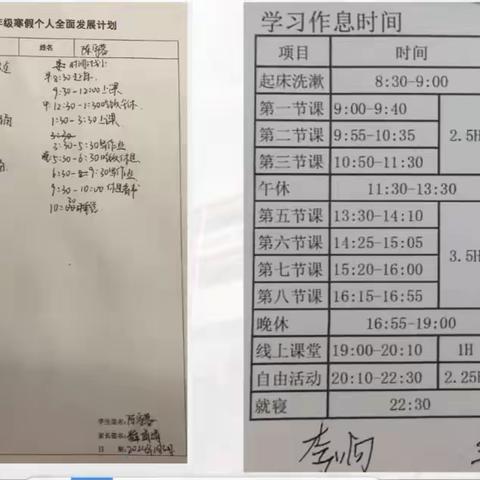 年级寒假个人全面发展计划
姓名
8:30起床
9:30-12:00上课
12:30-1:30
1:30-3:30上课
3:30
3:30-5:30写作业
5:30-6:30
6:30-
9:30写作业
9:30-10:00
学生签名:
家长签名:
日 期:
学习作息时间
项目 时间
起床洗漱 8:30-9:00
第一节课 9:00-9:40
第二节课 9:55-10:35 2.5H
第三节课 10:50-11:30
午休 11:30-13:30
第五节课 13:30-14:10
第六节课 14:25-15:05
第七节课 15:20-16:00 3.5H
第八节课 16:15-16:55
晚休 16:55-19:00
线上课堂 19:00-20:10 1H
自由活动 20:10-22:30 2.25H
就寝 22:30